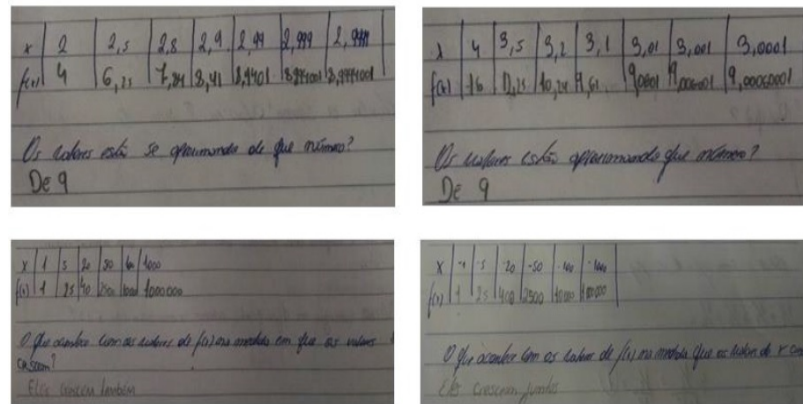 x | 2 | 2,5 | 2,8 | 2,9 | 2,99 | 2,999 | 2,9999
f(x) | 4 | 6,25 | 7,84 | 8,41 | 8,9401 | 8,994001 | 8,99940001
Os valores estão se aproximando de que número?
De 9
x | 4 | 3,5 | 3,2 | 3,1 | 3,01 | 3,001 | 3,0001
f(x) | 16 | 12,25 | 10,24 | 9,61 | 9,0601 | 9,006001 | 9,00060001
Os valores estão aproximando que número?
De 9
x | 1 | 5 | 20 | 50 | 100 | 1000
f(x) | 1 | 25 | 40 | 2500 | 10000 | 1000000
O que acontece com os valores de f(x) na medida em que os valores
crescem?
Eles crescem também
x | -1 | -5 | -20 | -50 | -100 | -1000
f(x) | 1 | 25 | 400 | 2500 | 10000
O que acontece com os valores de f(x) na medida que os valores de x
Eles crescem juntos